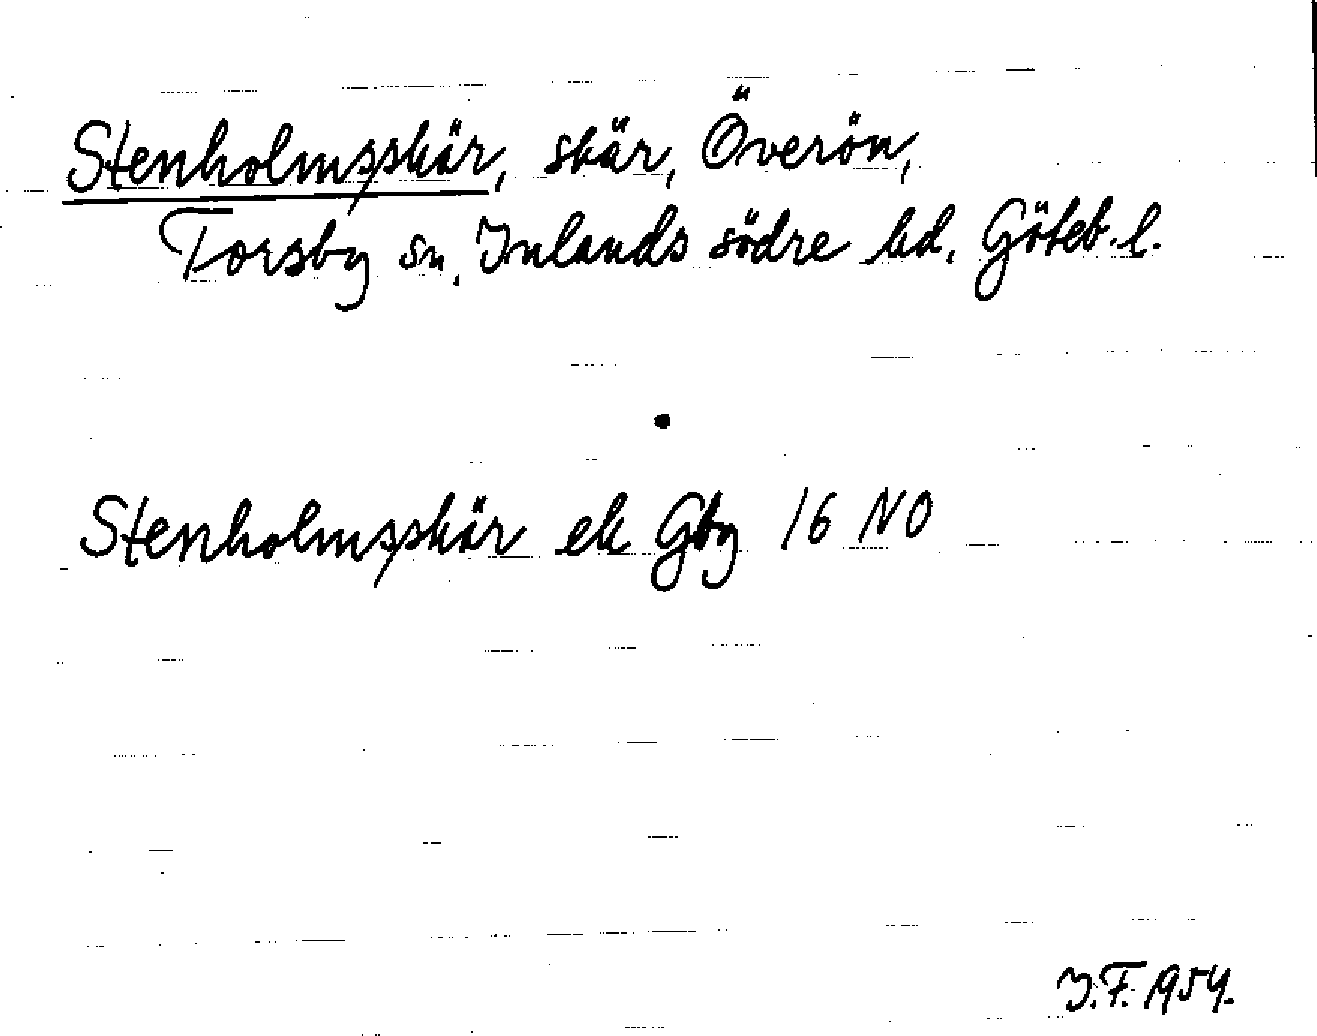 Stenholmsskär, skär, Överön,
Torsby sn, Inlands södre hd, Göteb. l.
Stenholmsskär ek Gbg 16 NO
I.F. 1954.